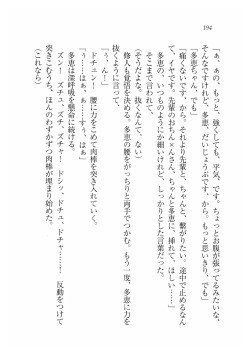 194
「ぁ、あの、もっと、強くしても、平気、です。ちょっとお腹が張ってるみたいな、
そんなですけれど、多恵、だいじょうぶです、から。もっと思いきり、でも」
「多恵ちゃん、でも」
「痛くないです、から。それより先輩と、ちゃんと、繋がりたい。途中で止めるなん
て、イヤです。先輩のおちん×んさん、ちゃんと多恵に、挿れて、ほしい……」
多恵の、いつものように細いけれど、しっかりとした言葉だった。
そこまで言われて、
（そうだよな、抜くなんて、ない）
修人も覚悟を決める。多恵の腰をがっちりと両手でつかむ。もう一度、多恵に力を
抜くように言って、
「ぅ、ん！」
ドチュン！　腰に力をこめて肉棒を突き入れていく。
「ぅ……はぁ、ぁ……す、はぁ」
多恵は深呼吸を懸命に続ける。
ズン！　ズチュ、ズチ、ズチャ！　ドシッ、ドチュ、ドチャ……！　反動をつけて
突きこむうち、ほんのわずかずつ肉棒が埋まり始めた。
（これなら）